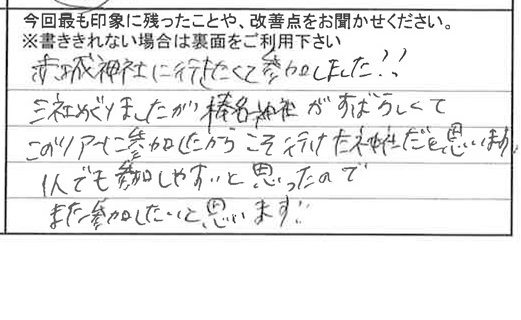 今回最も印象に残ったことや、改善点をお聞かせください。
※書ききれない場合は裏面をご利用下さい
赤城神社に行きたくて参加しました!!
三社めぐりましたが榛名神社がすばらしくて
このツアーに参加したからこそ行けた神社だと思います
1人でも参加しやすいと思ったので
また参加したいと思います!!